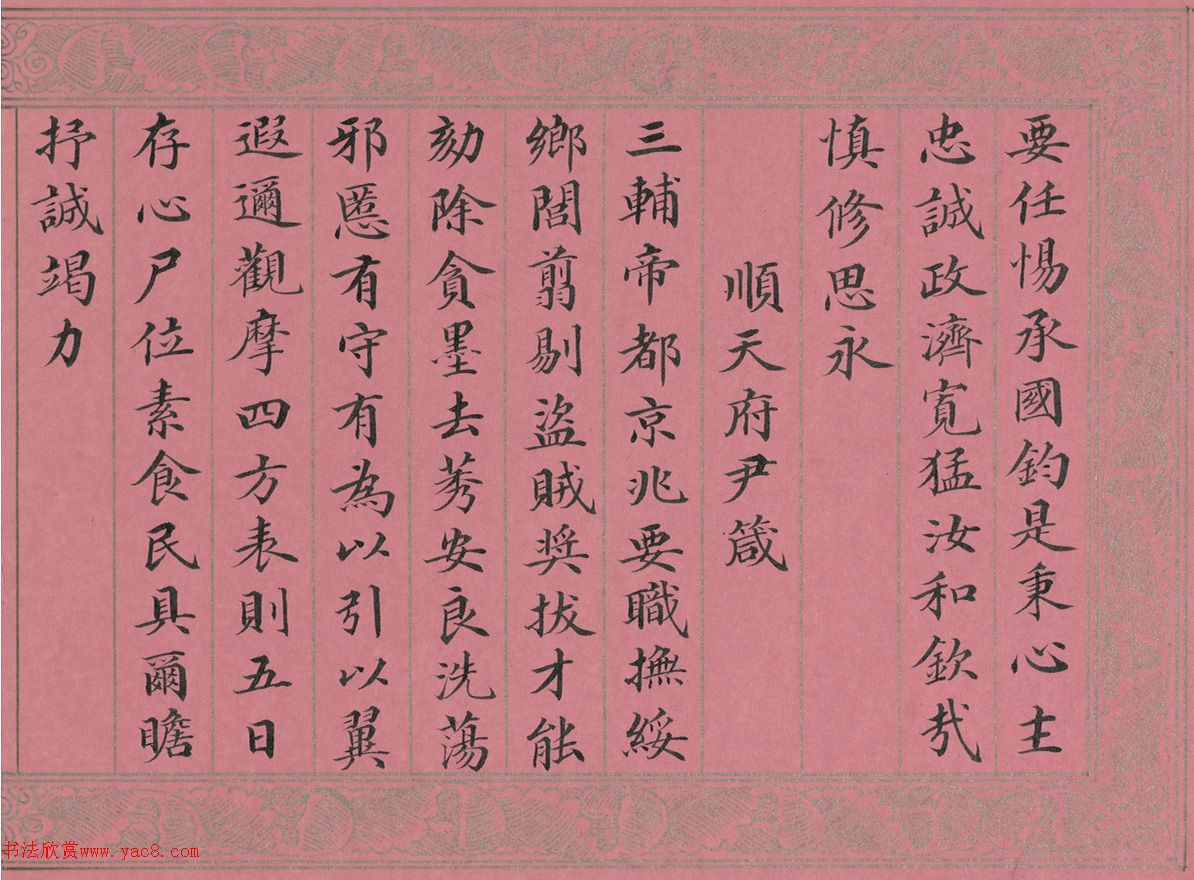 要任惕承國鈞是秉心主
忠誠政濟寬猛汝和欽哉
慎修思永
順天府尹箴
三輔帝都京兆要職撫綏
鄉閭剪剔盜賊奨拔才能
劾除貪墨去莠安良洗蕩
邪慝有守有為以引以翼
遐邇觀摩四方表則五日
存心尸位素食民具爾瞻
抒誠竭力
书法欣赏www.yac8.com